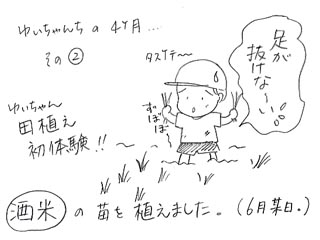 ゆいちゃんちの 4ヶ月...
その②
タスケテ〜〜
足が
抜けな〜い
ずぼずぼ
ゆいちゃん
田植え
初体験!! 〜
酒米 の 苗を 植えました。(6月某日。)